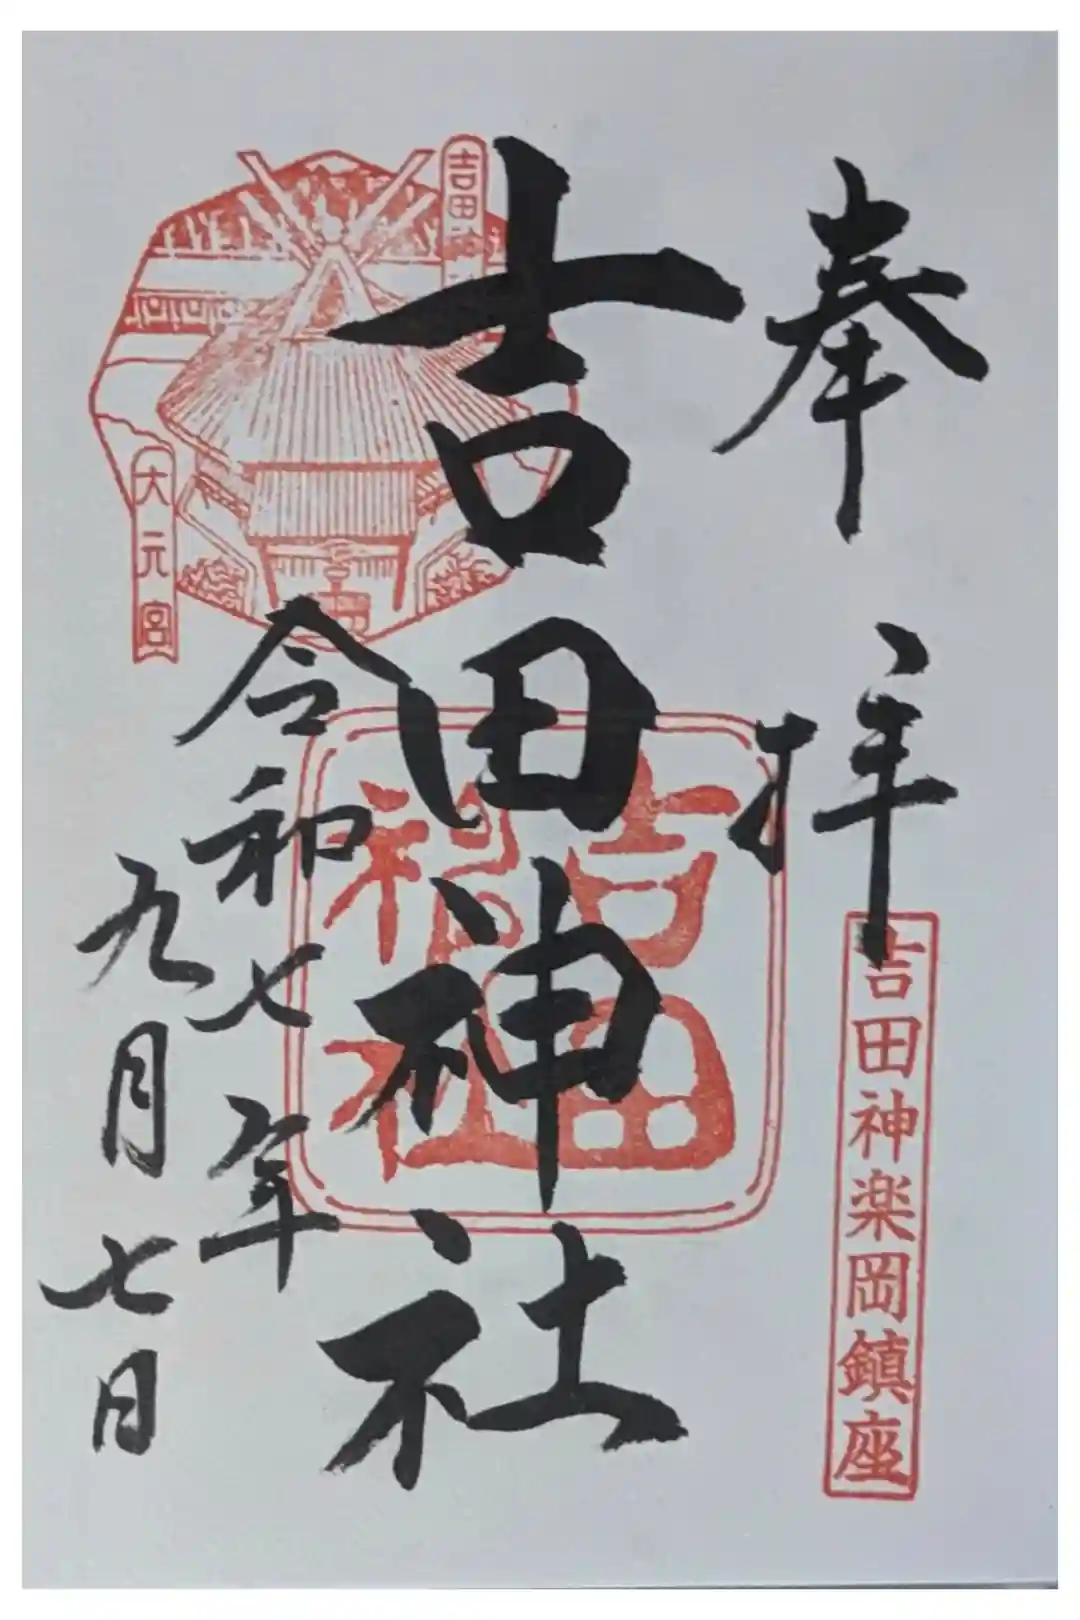 奉拝
吉田神楽岡鎮座
吉田神社
吉田
神社
令和七年
九月七日
吉田
大元宮